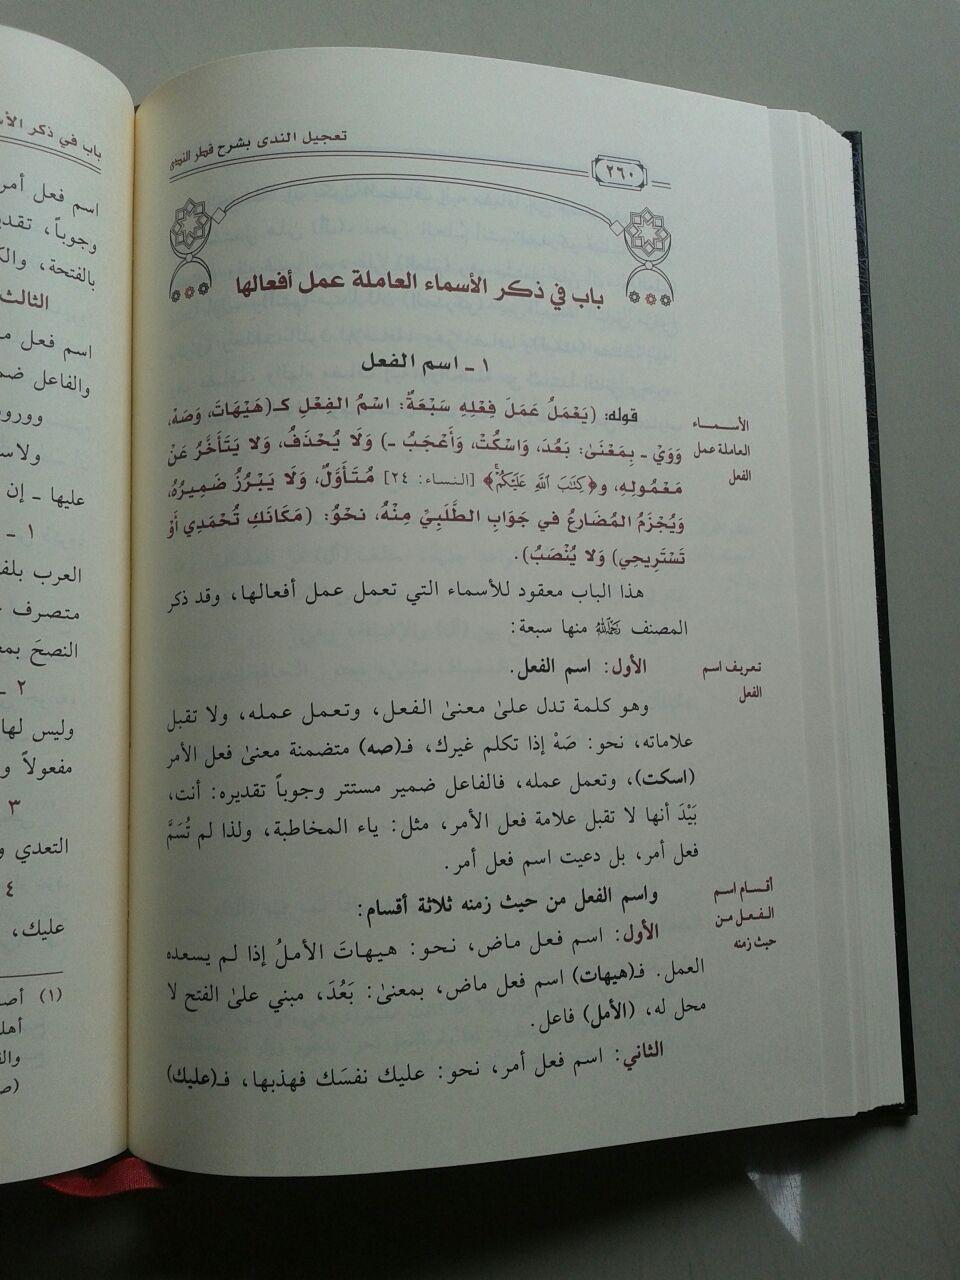 تعجيل الندى بشرح قطر الندى
٢٦٠
باب في ذكر الأسماء العاملة عمل أفعالها
١ ـ اسم الفعل
قوله: (يَعْمَلُ عَمَلَ فِعْلِهِ سَبْعَةٌ: اسْمُ الفِعْلِ كـ(هَيْهَاتَ، وَصَهْ،
وَوَيْ ـ بِمَعْنَىٰ: بَعُدَ، وَاسْكُتْ، وَأَعْجَبُ ـ) وَلَا يُحْذَفُ، وَلَا يَتَأَخَّرُ عَنْ
مَعْمُولِهِ، و﴿كِتَٰبَ ٱللَّهِ عَلَيْكُمْۚ﴾ [النساء: ٢٤] مُتَأَوَّلٌ، وَلَا يَبْرُزُ ضَمِيرُهُ،
وَيُجْزَمُ المُضَارِعُ في جَوَابِ الطَّلَبِيِّ مِنْهُ، نَحْوُ: (مَكَانَكِ تُحْمَدِي أَوْ
تَسْتَرِيحِي) وَلَا يُنْصَبُ).
الأسـمـاء
العاملة عمل
الفعل
هذا الباب معقود للأسماء التي تعمل عمل أفعالها، وقد ذكر
المصنف رَحِمَهُ اللهُ منها سبعة:
الأول: اسم الفعل.
تعريف اسم
الفعل
وهو كلمة تدل علىٰ معنىٰ الفعل، وتعمل عمله، ولا تقبل
علاماته، نحو: صَهْ إذا تكلم غيرك، فـ(صه) متضمنة معنىٰ فعل الأمر
(اسكت)، وتعمل عمله، فالفاعل ضمير مستتر وجوباً تقديره: أنت،
بَيْدَ أنها لا تقبل علامة فعل الأمر، مثل: ياء المخاطبة، ولذا لم تُسَمَّ
فعل أمر، بل دعيت اسم فعل أمر.
واسم الفعل من حيث زمنه ثلاثة أقسام:
أقسام اسم
الـفـعـل مـن
حيث زمنه
الأول: اسم فعل ماض، نحو: هيهاتَ الأملُ إذا لم يسعده
العمل. فـ(هيهات) اسم فعل ماض، بمعنىٰ: بَعُدَ، مبني علىٰ الفتح لا
محل له، (الأمل) فاعل.
الثاني: اسم فعل أمر، نحو: عليك نفسَك فهذبها، فـ(عليك)
باب في ذكر
اسم فعل أمر
وجوباً،
بالفتحة،
الثالث
اسم فعل
والفاعل
عليها ـ إن
١ ـ
العرب
متصرف
النصحَ
٢ ـ
وليس لها
مفعولاً
٣
التعدي
٤
عليك،
(١)